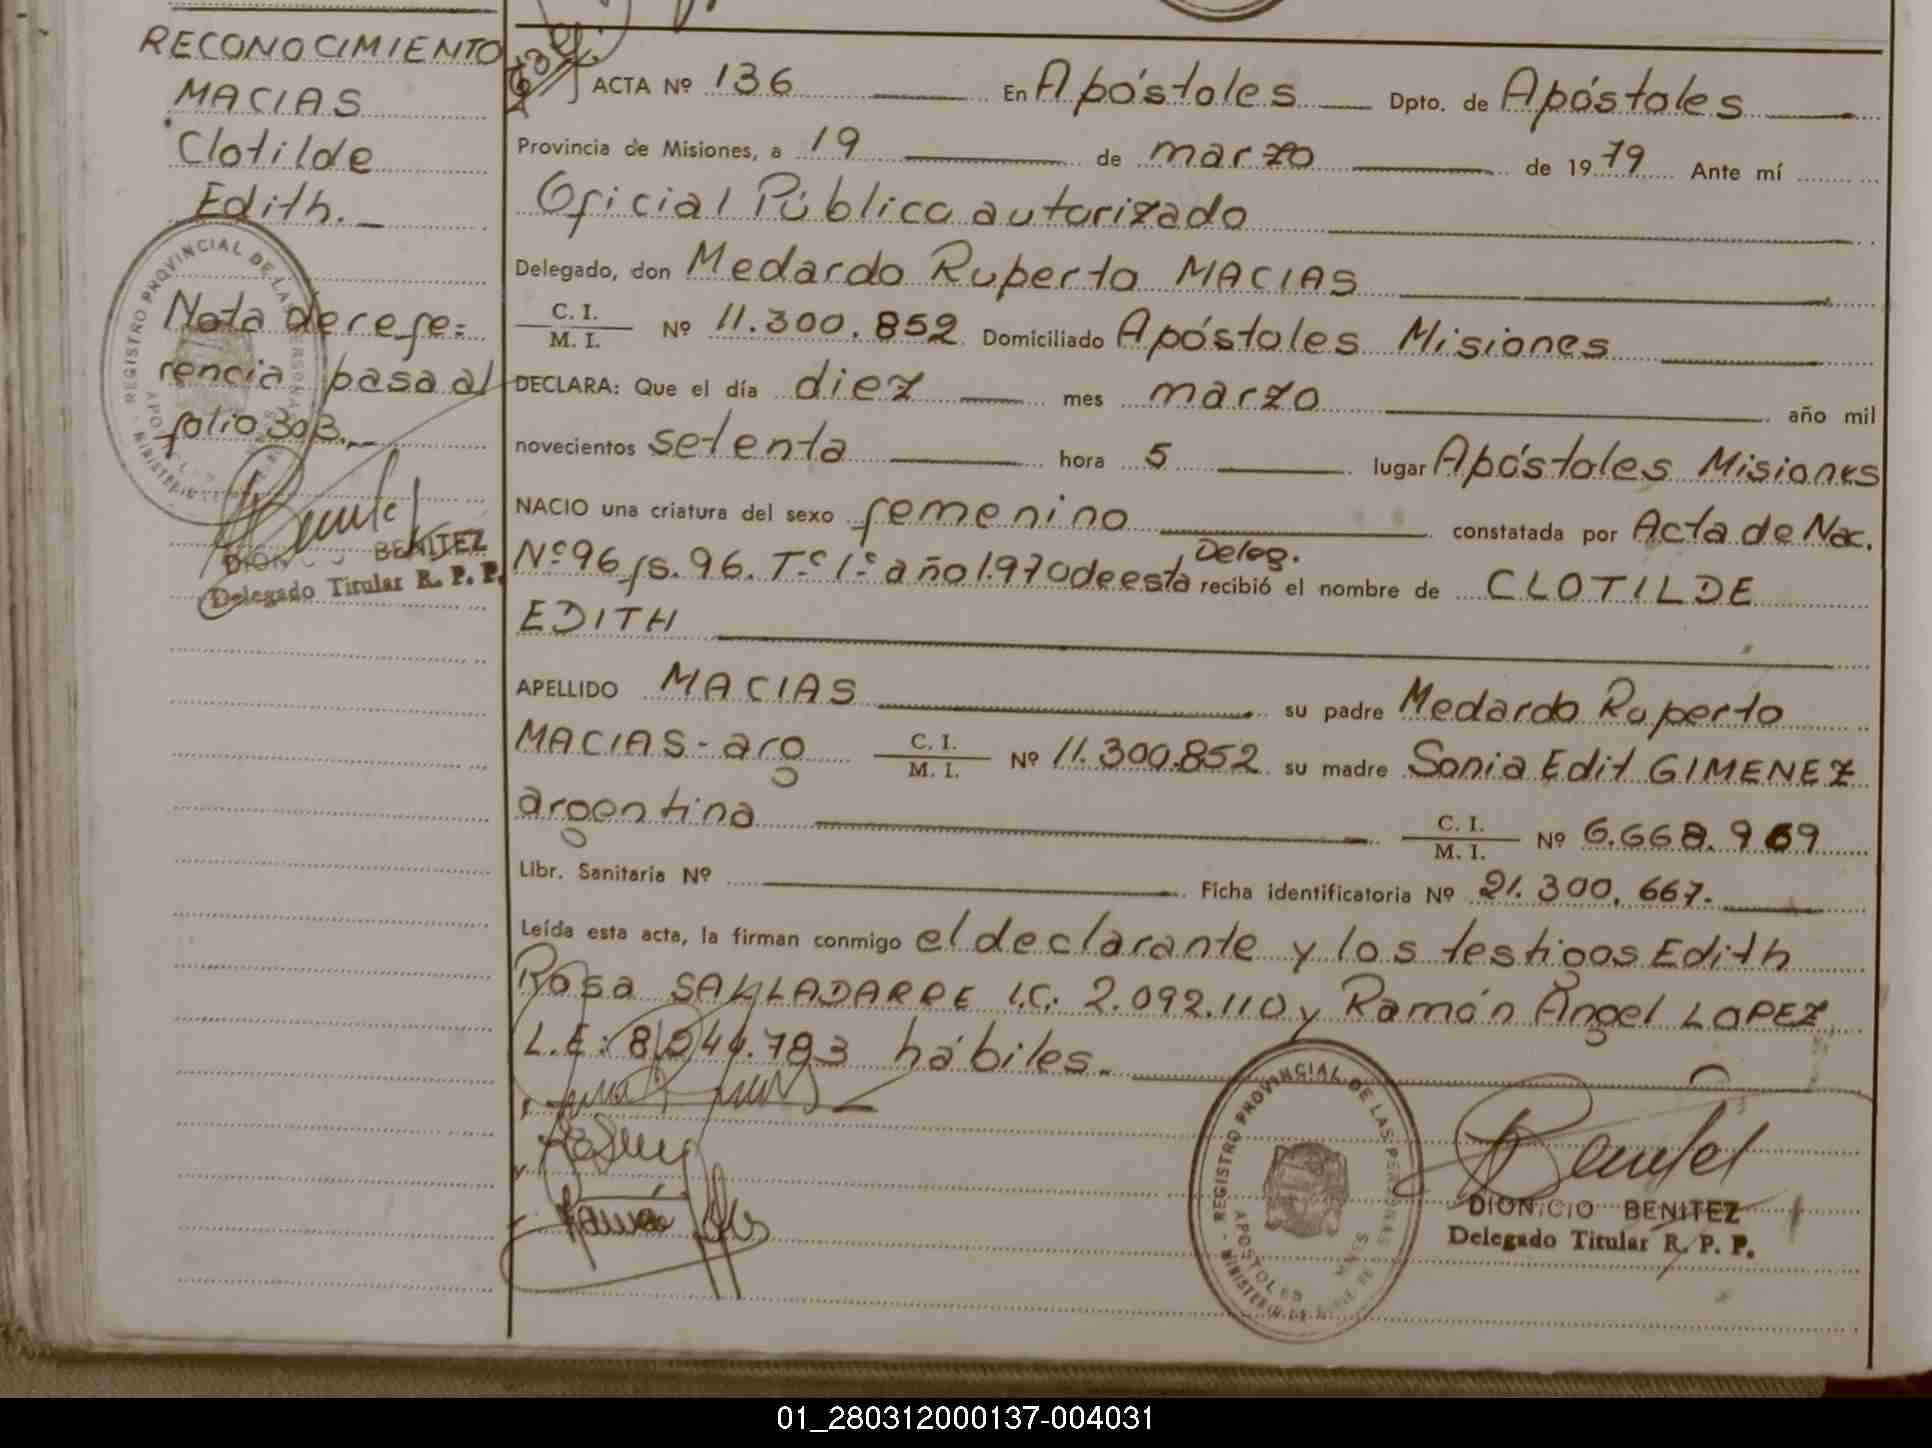 RECONOCIMIENTO
MACIAS
Clotilde
Edith.
Nota de refe=
rencia pasa al
folio 303.
DIONICIO BENITEZ
Delegado Titular R. P. P.
ACTA Nº 136 En Apóstoles Dpto. de Apóstoles
Provincia de Misiones, a 19 de marzo de 1979 Ante mí
Oficial Público autorizado
Delegado, don Medardo Ruperto MACIAS
C. I. / M. I. Nº 11.300.852 Domiciliado Apóstoles Misiones
DECLARA: Que el día diez mes marzo año mil
novecientos setenta hora 5 lugar Apóstoles Misiones
NACIO una criatura del sexo femenino constatada por Acta de Nac.
Nº 96 fs. 96. Tº 1º año 1.970 de esta Deleg. recibió el nombre de CLOTILDE
EDITH
APELLIDO MACIAS su padre Medardo Ruperto
MACIAS - arg C. I. / M. I. Nº 11.300.852 su madre Sonia Edit GIMENEZ
argentina C. I. / M. I. Nº 6.668.969
Libr. Sanitaria Nº Ficha identificatoria Nº 21.300.667.
Leída esta acta, la firman conmigo el declarante y los testigos Edith
Rosa SALLADARRE L.C. 2.092.110 y Ramón Ángel LOPEZ
L.E: 8.044.783 hábiles.
REGISTRO PROVINCIAL DE LAS PERSONAS
APOSTOLES
DIONICIO BENITEZ
Delegado Titular R. P. P.
01_280312000137-004031